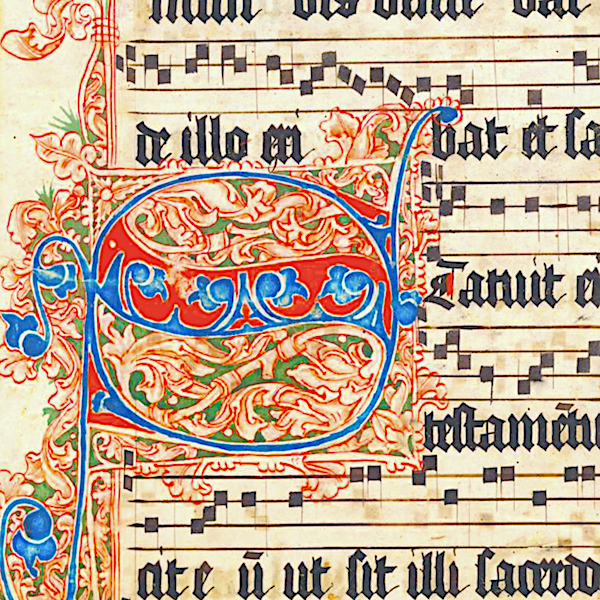 de illo eri bat et sa
STatuit ei
testamētu
cit e ū ut sit illi sacerdo